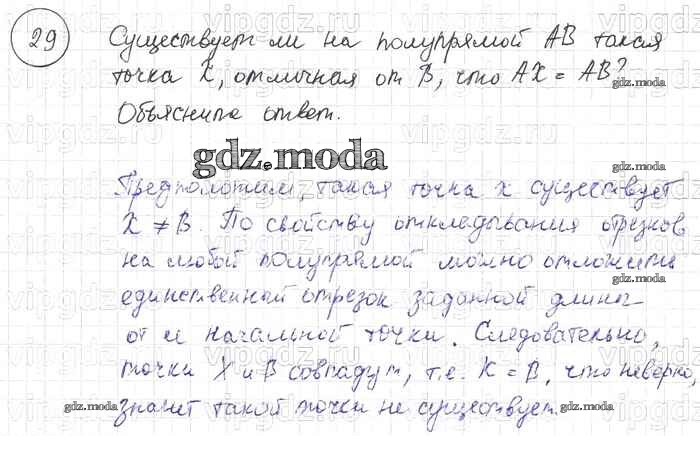 29 Существует ли на полупрямой AB такая
точка X, отличная от B, что AX = AB?
Объясните ответ.
gdz.moda
gdz.moda
Предположим, такая точка x существует
X ≠ B. По свойству откладывания отрезков
на любой полупрямой можно отложить
единственный отрезок заданной длины
gdz.moda
от ее начальной точки. Следовательно,
точки X и B совпадут, т.е. X = B, что неверно,
значит такой точки не существует.
gdz.moda
gdz.moda